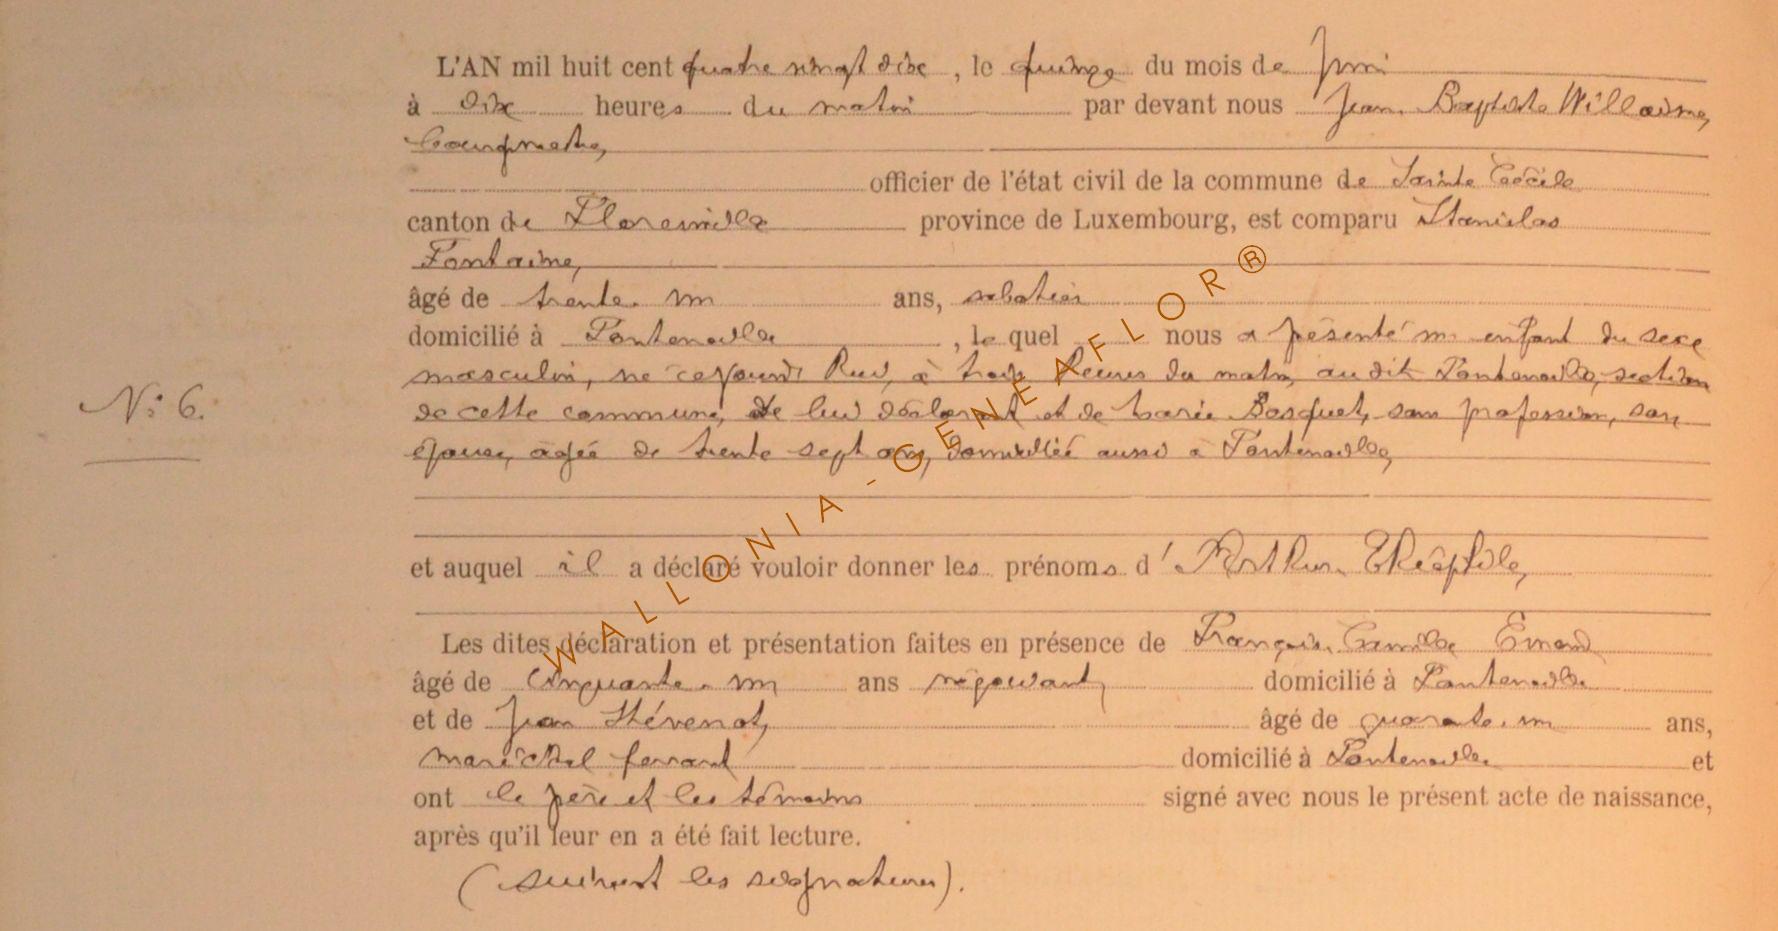 L'AN mil huit cent quatre vingt dix, le quinze du mois de Juin
à dix heures du matin par devant nous Jean Baptiste Willaime,
bourgmestre,
officier de l'état civil de la commune de Sainte Cécile
canton de Florenville province de Luxembourg, est comparu Stanislas
Fontaine,
âgé de trente-un ans, sabotier
domicilié à Fontenoille, le quel nous a présenté un enfant du sexe
masculin, né cejourd'hui, à trois heures du matin, au dit Fontenoille, section
N° 6.
de cette commune, de lui déclarant et de Marie Bosquet, sans profession, son
épouse, agée de trente sept ans, domiciliée aussi à Fontenoille,
et auquel il a déclaré vouloir donner les prénoms d'Arthur Théophile,
Les dites déclaration et présentation faites en présence de François Camille Emond
âgé de cinquante-un ans négociant, domicilié à Fontenoille
et de Jean Thévenot, âgé de quarante-un ans,
maréchal ferrant domicilié à Fontenoille et
ont le père et les témoins signé avec nous le présent acte de naissance,
après qu'il leur en a été fait lecture.
(suivent les signatures).
WALLONIA-GENEAFLOR®